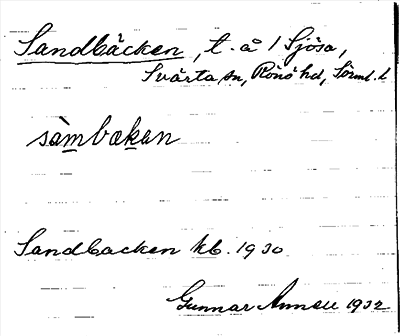 Sandbäcken, t. å / Sjösa,
Svärta sn, Rönö hd, Sörml. l.
sàmbækan
Sandbacken kb. 1930
Gunnar 1932